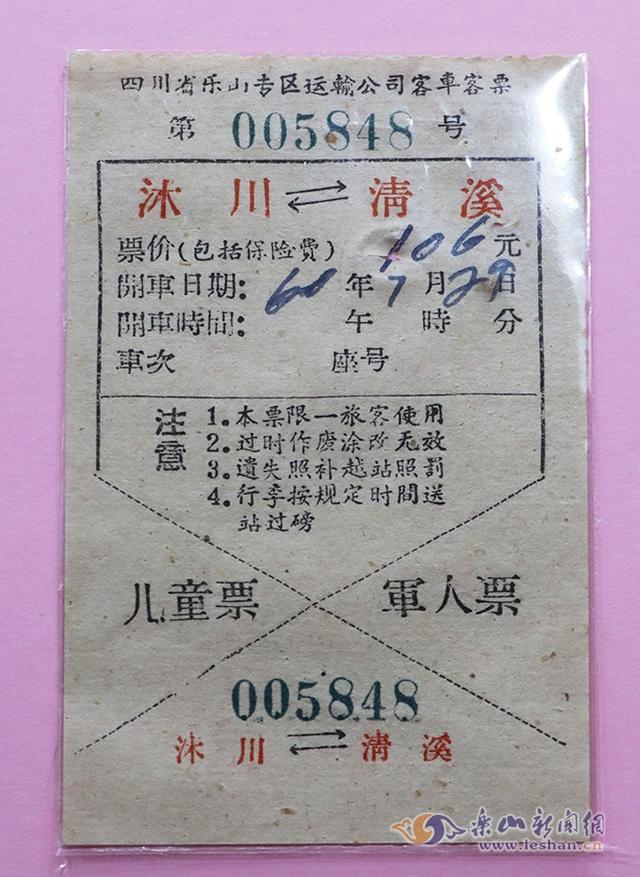 四川省乐山专区运輸公司客車客票
第 005848 号
沐川⇌清溪
票价(包括保险費) 106元
開車日期: 60年7月29日
開車時間: 午 時 分
車次 座号
注意
1.本票限一旅客使用
2.过时作废涂改无效
3.遺失照补越站照罰
4.行李按规定时間送
站过磅
儿童票 軍人票
005848
沐川⇌清溪
乐山新闻網
www.leshan.cn